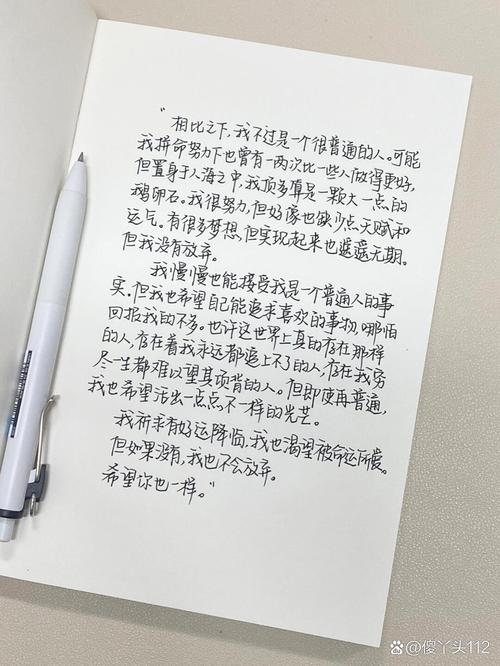 “相比之下，我不过是一个很普通的人。可能
我拼命努力下也曾有一两次比一些人做得更好，
但置身于人海之中，我顶多算是一颗大一点的
鹅卵石。我很努力，但好像也缺少点天赋和
运气。有很多梦想，但实现起来也遥遥无期。
但我没有放弃。
我慢慢也能接受我是一个普通人的事
实。但我也希望自己能追求喜欢的事物，哪怕
回报我的不多。也许这世界上真的存在那样
的人，存在着我永远都追上不了的人，存在我穷
尽一生都难以望其项背的人。但即使再普通，
我也希望活出一点点不一样的光芒。
我祈求有好运降临，我也渴望被命运所爱。
但如果没有，我也不会放弃。
希望你也一样。”
百度@傻丫头112